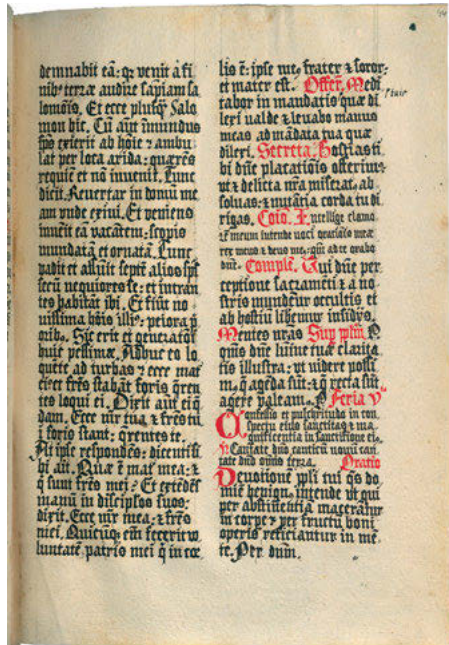 demnabit eā: qꝛ venit a fi
nibꝰ terræ audire sapiam sa
lomōis. Et ecce plusqͣ Salo
mon hic. Cū aūt īmundus
sps exierit ab hoīe ꝛ ambu
lat per loca arida: quærēs
requiē et nō invenit. Tunc
dicit. Revertar in domū me
am unde exivi. Et veniens
invēit eā vacātem: scopis
mundatā et ornatā. Tunc
vadit et assūit septē alios sps
secū nequiores se: et intran
tes habitāt ibi. Et fiūt no
vissima hoīs illiꝰ: peiora p̄
oribꝰ. Sic erit et generatiōi
huic pessimæ. Adhuc eo lo
quēte ad turbas ꝛ ecce mat̄
eiꝰ et frēs stabāt foris q̄ren
tes loqui ei. Dixit aūt ei q̄
dam. Ecce mr̄ tua ꝛ frēs tui
foris stant: q̄rentes te.
At ipse respondēs: dicenti si
bi ait. Quæ ē mat̄ mea: ꝛ
q̄ sunt frēs mei? Et extēdēs
manū in discip̄los suos:
dixit. Ecce mr̄ mea: ꝛ frēs
mei. Quicūqꝫ em̄ fecerit vo
luntatē patris mei q̄ in cœ
lis ē: ipse meꝰ frater ꝛ soror:
et mater est. Offert̄. Medi
tabor in mandatis quæ di
lexi valde ꝛ levabo manus
meas ad mādata tua quæ
dilexi. Secreta. Hostias ti
bi dn̄e placatiōis offerimꝰ:
vt ꝛ delicta nr̄a miserat̄. ab
solvas: ꝛ nutātia corda tu di
rigas. Cōio. Intellige clamo
rē meum intende voci oratiōis meæ
rex meus ꝛ deus meꝰ: qm̄ ad te orabo
dn̄e. Complē. Tui dn̄e per
ceptione sacramēti ꝛ a no
stris mundēur occultis et
ab hostiū liberemur insidijs.
Mentes nr̄as Sup pl̄m
qm̄s dn̄e lumīe tuæ clarita
tis illustra: vt videre possi
mꝰ q̄ agēda sūt: ꝛ q̄ recta sūt
agere valeam. P̄ Feria V
Confessio et pulchritudo in con
spectu eiꝰ: sanctitas ꝛ ma
gnificentia in sanctificatione eiꝰ.
Cantate dn̄o canticū novū can
tate dn̄o omīs terra. Oratio
Devotionē pp̄li tui qs̄ do
mīe benignꝰ intende vt qui
per abstinentiā macerātur
in corpe ꝛ per fructū boni
operis reficiantur in mē
te. Per dnm̄.